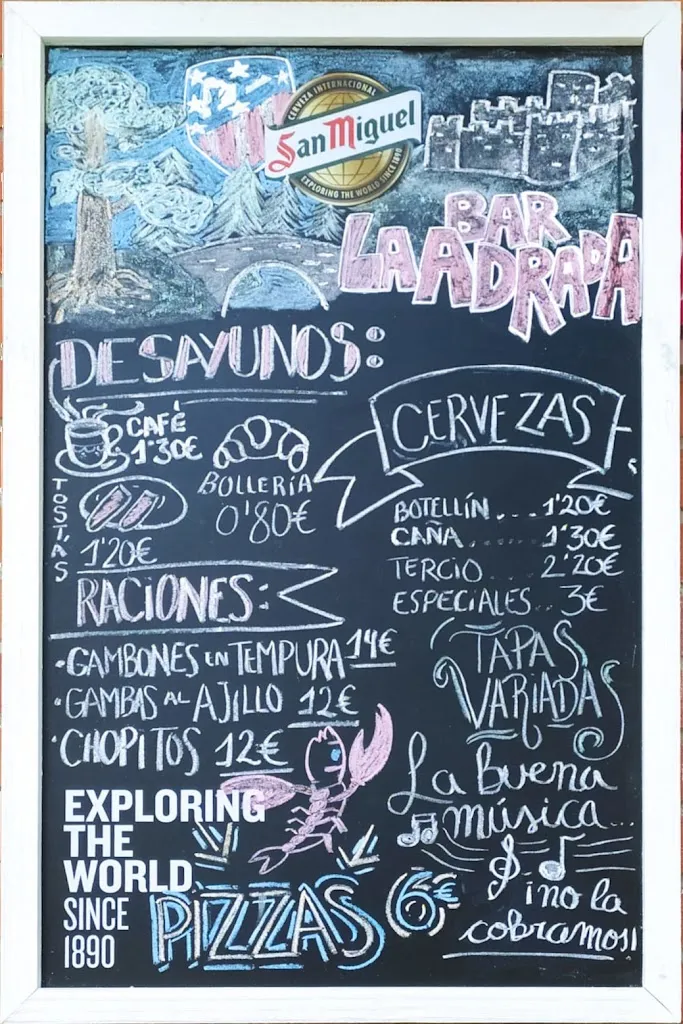 CERVEZA INTERNACIONAL
San Miguel
EXPLORING THE WORLD SINCE 1890
BAR
LA ADRADA
DESAYUNOS:
CAFÉ
1'30€
BOLLERÍA
0'80€
TOSTAS
1'20€
CERVEZAS
BOTELLÍN.... 1'20€
CAÑA ..... 1'30€
TERCIO.... 2'20€
ESPECIALES.. 3€
RACIONES:
·GAMBONES EN TEMPURA 14€
·GAMBAS AL AJILLO 12€
·CHOPITOS 12€
TAPAS
VARIADAS
La buena
música...
¡no la
cobramos!!
EXPLORING
THE
WORLD
SINCE
1890
PIZZAS 6€